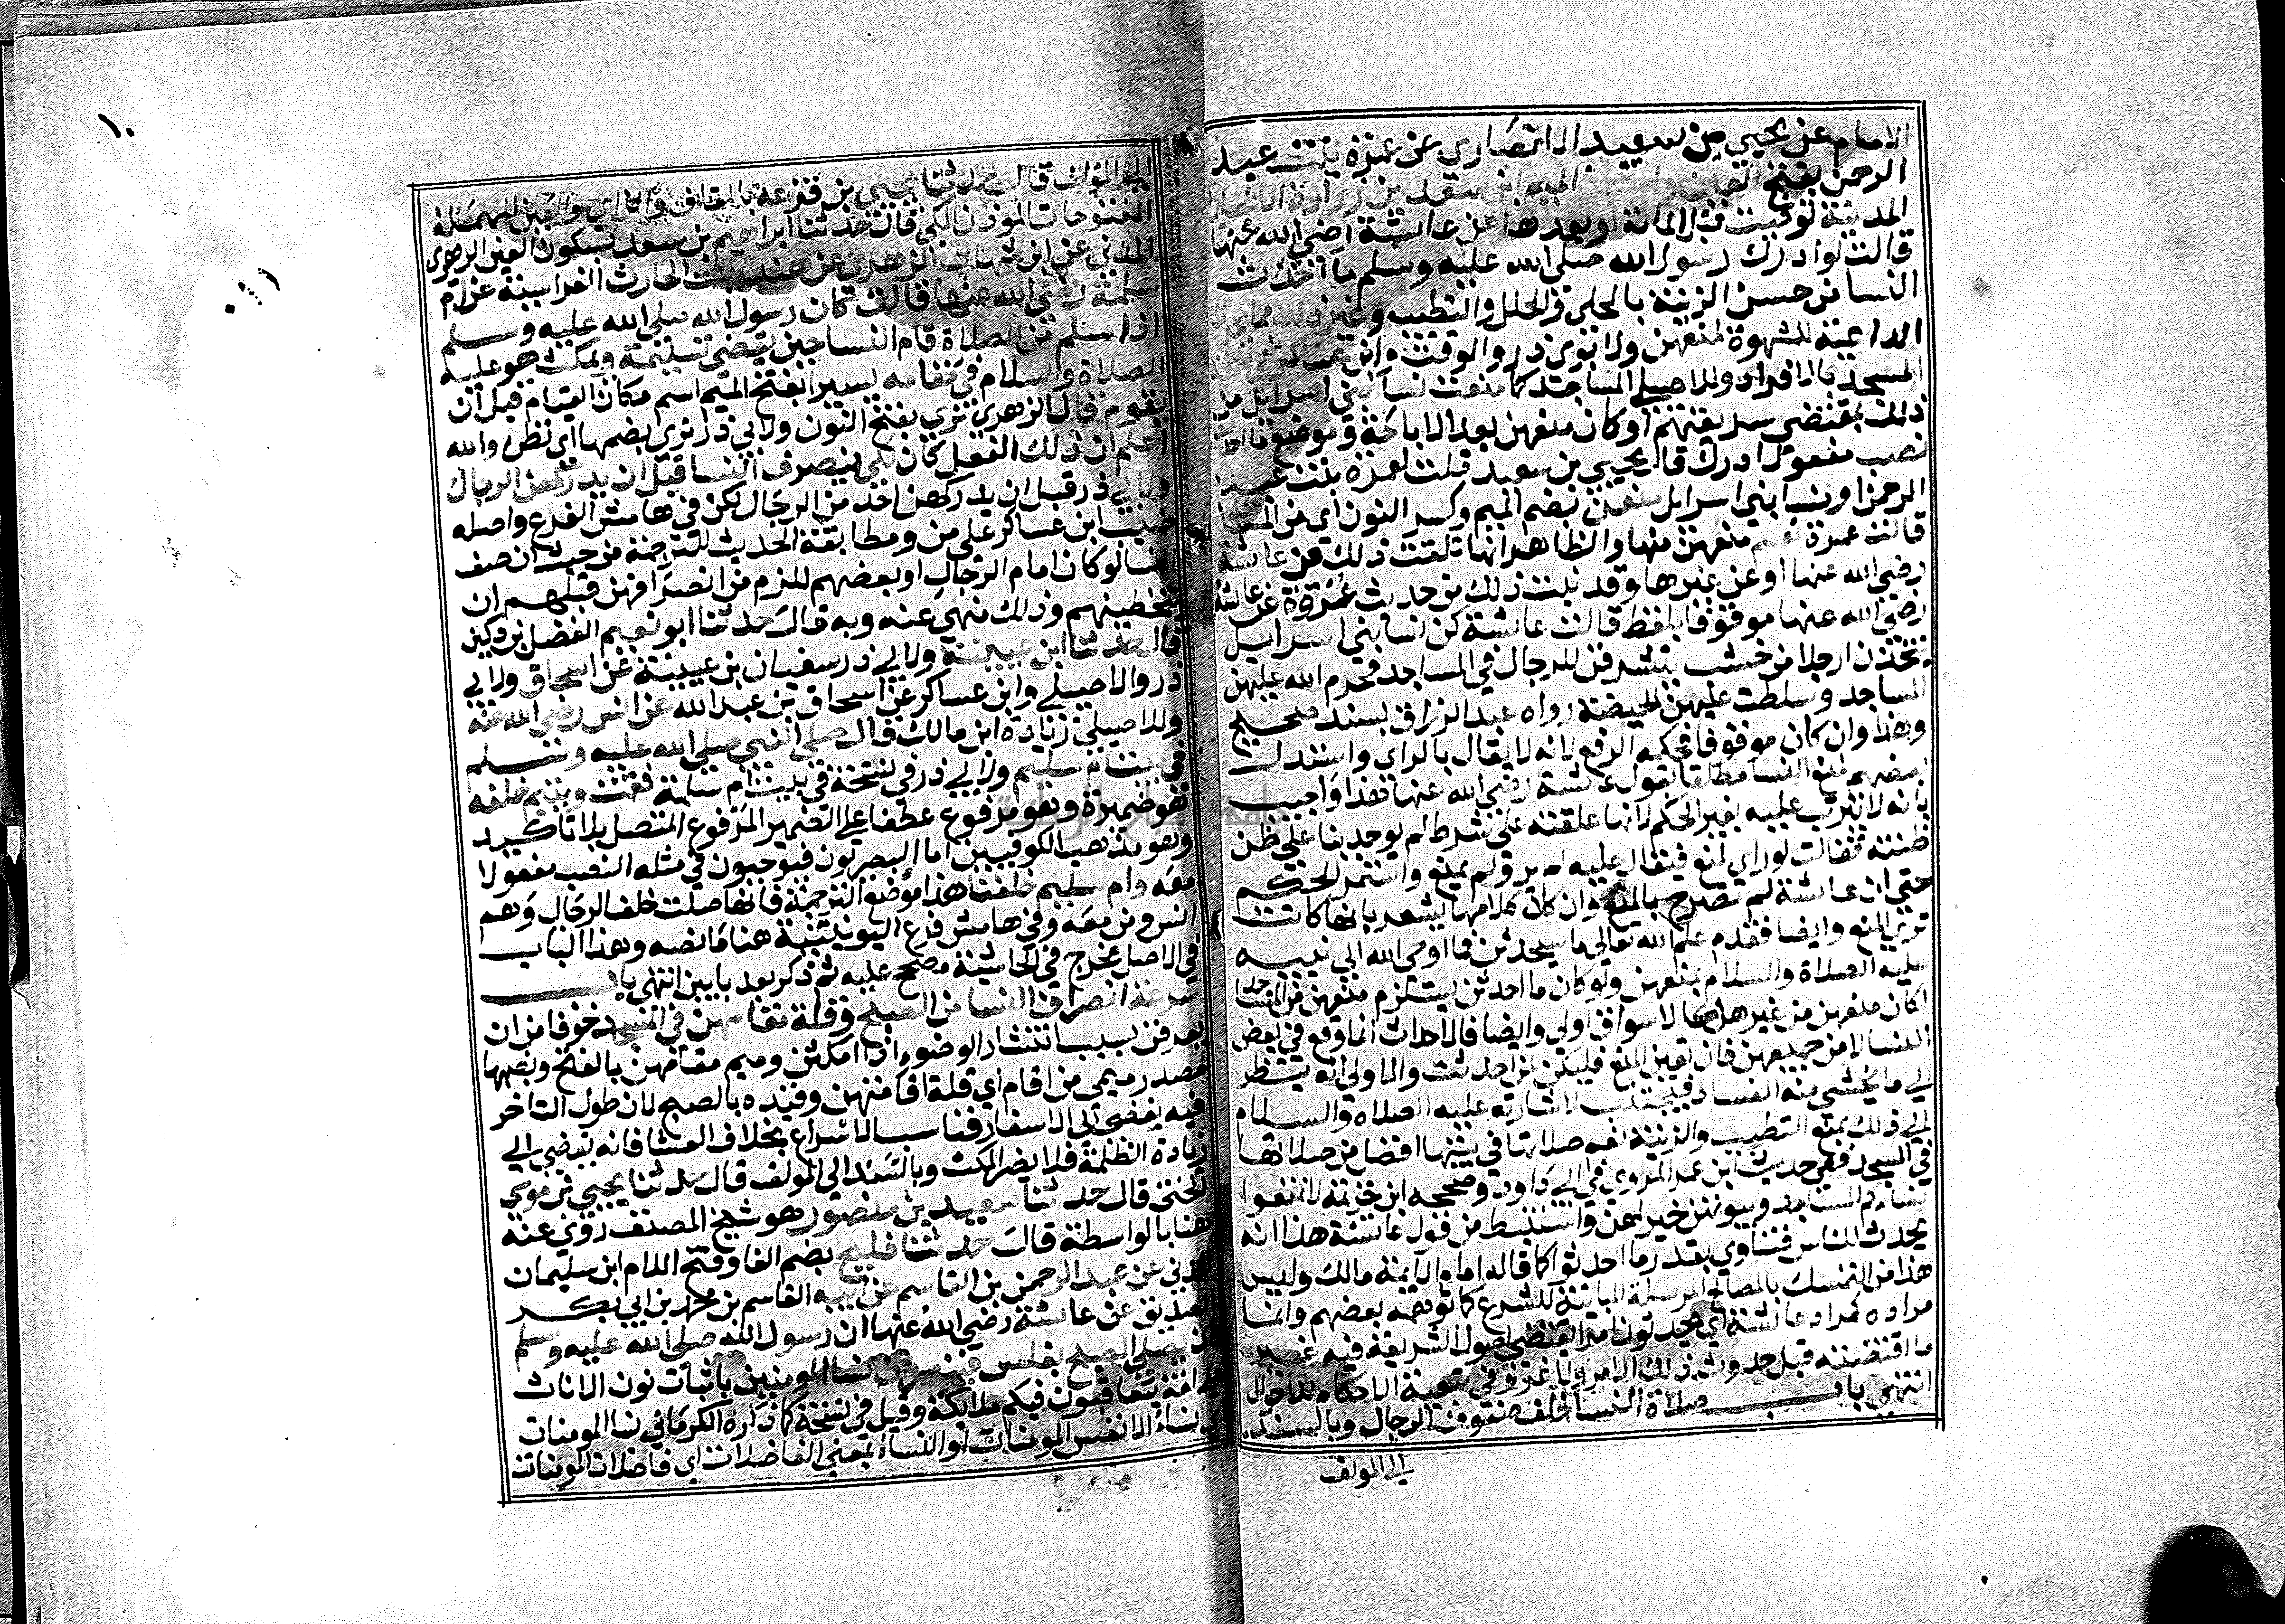 الامام عن يحيي بن سعيد الانصاري عن عمرة بنت عبد
الرحمن بفتح العين واسكان الميم ابن سعد بن زرارة الانصار
المدينة توفيت قبل المائة او بعدها عن عائشة رضي الله عنها
قالت لو ادرك رسول الله صلي الله عليه وسلم ما احدث
النسا من حسن الزينة بالحلي والحلل والتطيب وغير ذلك مما
الداعية للشهوة لمنعهن ولابوي ذر والوقت وابن عساكر
المسجد بالافراد وللاصيلي المساجد كما منعت نسا بني اسرايل من
ذلك بمقتضي شريعتهم او كان منعهن بعد الاباحة وموضع ما احد
نصب مفعول ادرك قال يحيي بن سعيد قلت لعمرة بنت عبد
الرحمن او نسا بني اسرايل منعن بضم الميم وكسر النون اي من
قالت عمرة نعم منعهن منها والظاهر انها تلقت ذلك عن عائشة
رضي الله عنها او عن غيرها وقد ثبت ذلك من حديث عروة عن عائشة
رضي الله عنها موقوفا بلفظ قالت عائشة كن نسا بني اسرايل
يتخذن ارجلا من خشب يتشرفن للرجال في المساجد فحرم الله عليهن
المساجد وسلطت عليهن الحيضة رواه عبد الرزاق بسند صحيح
وهذا وان كان موقوفا فحكمه الرفع لانه لا يقال بالراي واستدل
بعضهم لمنع النسا مطلقا بقول عائشة رضي الله عنها هذا واجيب
بانه لا يترتب عليه بغير الحكم لانها علقته علي شرط لم يوجد بنا علي ظن
ظنته فقالت لو راي لمنع فيقال عليه لم ير ولم يمنع واستمر الحكم
حتي ان عائشة لم تصرح بالمنع وان كان كلامها يشعر بانها كانت
تري المنع وايضا فقد علم الله تعالي ما سيحدثن فما اوحي الله الي نبيه
عليه الصلاة والسلام بمنعهن ولو كان ما احدثن يستلزم منعهن من المساجد
لكان منعهن من غيرها كالاسواق اولي وايضا فالاحداث انما وقع في بعض
النسا لا من جميعهن فان تعين المنع فليكن لمن احدثت والاولي انه ينظر
الي ما يخشي منه الفساد فيجتنب لاشارته عليه الصلاة والسلام
الي ذلك بمنع التطيب والزينة نعم صلاتها في بيتها افضل من صلاتها
في المسجد ففي حديث ابن عمر المروي في ابي داود وصححه ابن خزيمة لا تمنعوا
نساءكم المساجد وبيوتهن خير لهن واستنبط من قول عائشة هذا انه
يحدث للناس فتاوي بقدر ما احدثوا كما قاله امام الايمة مالك وليس
هذا من التمسك بالمصالح المرسلة المباينة للشرع كما توهمه بعضهم وانما
مراده كمراد عائشة اي يحدثون امرا يقتضي اصول الشريعة فيه غير
ما اقتضته قبل حدوث ذلك الامر ولا غرو في تبعية الاحكام للاحوال
انتهي باب صلاة النسا خلف صفوف الرجال وبالسند
الي المولف
١٠
الي المولف قال حدثنا يحيي بن قزعة بالقاف والزاي والعين المهملة
المفتوحات المؤذن المكي قال حدثنا ابراهيم بن سعد بسكون العين الزهري
المدني عن ابن شهاب الزهري عن هند بنت الحارث الفراسية عن ام
سلمة رضي الله عنها قالت كان رسول الله صلي الله عليه وسلم
اذا سلم من الصلاة قام النسا حين يقضي تسليمه ويمكث هو عليه
الصلاة والسلام في مقامه يسيرا بفتح الميم اسم مكان القيام قبل ان
يقوم قال الزهري نري بفتح النون ولابي ذر نري بضمها اي نظن والله
اعلم ان ذلك الفعل كان لكي ينصرف النسا قبل ان يدركهن الرجال
ولابي ذر قبل ان يدركهن احد من الرجال لكن في هامش الفرع واصله
ضبب ابن عساكر علي من ومطابقة الحديث للترجمة من حيث ان صف
النسا لو كان امام الرجال او بعضهم للزم من انصرافهن قبلهم ان
يتخطينهم وذلك منهي عنه وبه قال حدثنا ابو نعيم الفضل بن دكين
قال حدثنا ابن عيينة ولابي ذر سفيان بن عيينة عن اسحاق ولابي
ذر والاصيلي وابن عساكر عن اسحاق بن عبد الله عن انس رضي الله عنه
وللاصيلي زيادة ابن مالك قال صلي النبي صلي الله عليه وسلم
في بيت ام سليم ولابي ذر في نسخة في بيت ام سلمة فقمت ويتيم خلفه
هو ضميرة وهو مرفوع عطفا علي الضمير المرفوع المتصل بلا تاكيد
وهو مذهب الكوفيين اما البصريون فيوجبون في مثله النصب مفعولا
معه وام سليم خلفنا هذا موضع الترجمة فانها صلت خلف الرجال وهم
انس ومن معه وفي هامش فرع اليونينية هنا ما نصه وهذا الباب
في الاصل مخرج في الحاشية مصحح عليه ثم ذكر بعد بابين انتهي باب
سرعة انصراف النسا من الصبح وقلة مقامهن في المسجد خوفا من ان
يعرفن بسبب انتشار الضوء اذا مكثن وميم مقامهن بالفتح وبضمها
مصدر ميمي من اقام اي قلة اقامتهن وقيده بالصبح لان طول التاخر
فيه يفضي الي الاسفار فناسب الاسراع بخلاف العشا فانه يفضي الي
زيادة الظلمة فلا يضر المكث وبالسند الي المولف قال حدثنا يحيي بن موسي
الختي قال حدثنا سعيد بن منصور هو شيخ المصنف روي عنه
هنا بالواسطة قال حدثنا فليح بضم الفا وفتح اللام ابن سليمان
المدني عن عبد الرحمن بن القاسم عن ابيه القاسم بن محمد بن ابي بكر
الصديق عن عائشة رضي الله عنها ان رسول الله صلي الله عليه وسلم
كان يصلي الصبح بغلس فينصرفن نسا المومنين باثبات نون الاناث
علي لغة يتعاقبون فيكم ملايكة وقيل في نسخة كما ذكره الكرماني نسا المومنات
اي نساء الانفس المومنات او النساء بمعني الفاضلات اي فاضلات المومنات